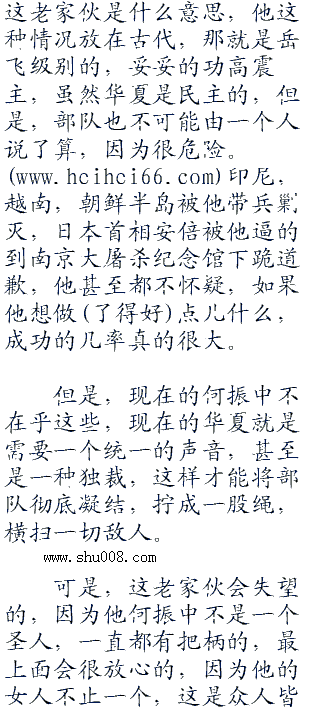 这老家伙是什么意思，他这
种情况放在古代，那就是岳
飞级别的，妥妥的功高震
主，虽然华夏是民主的，但
是，部队也不可能由一个人
说了算，因为很危险。
(www.hcihci66.com)印尼，
越南，朝鲜半岛被他带兵剿
灭，日本首相安倍被他逼的
到南京大屠杀纪念馆下跪道
歉，他甚至都不怀疑，如果
他想做(了得好)点儿什么，
成功的几率真的很大。
但是，现在的何振中不
在乎这些，现在的华夏就是
需要一个统一的声音，甚至
是一种独裁，这样才能将部
队彻底凝结，拧成一股绳，
横扫一切敌人。
www.shu008.com
可是，这老家伙会失望
的，因为他何振中不是一个
圣人，一直都有把柄的，最
上面会很放心的，因为他的
女人不止一个，这是众人皆